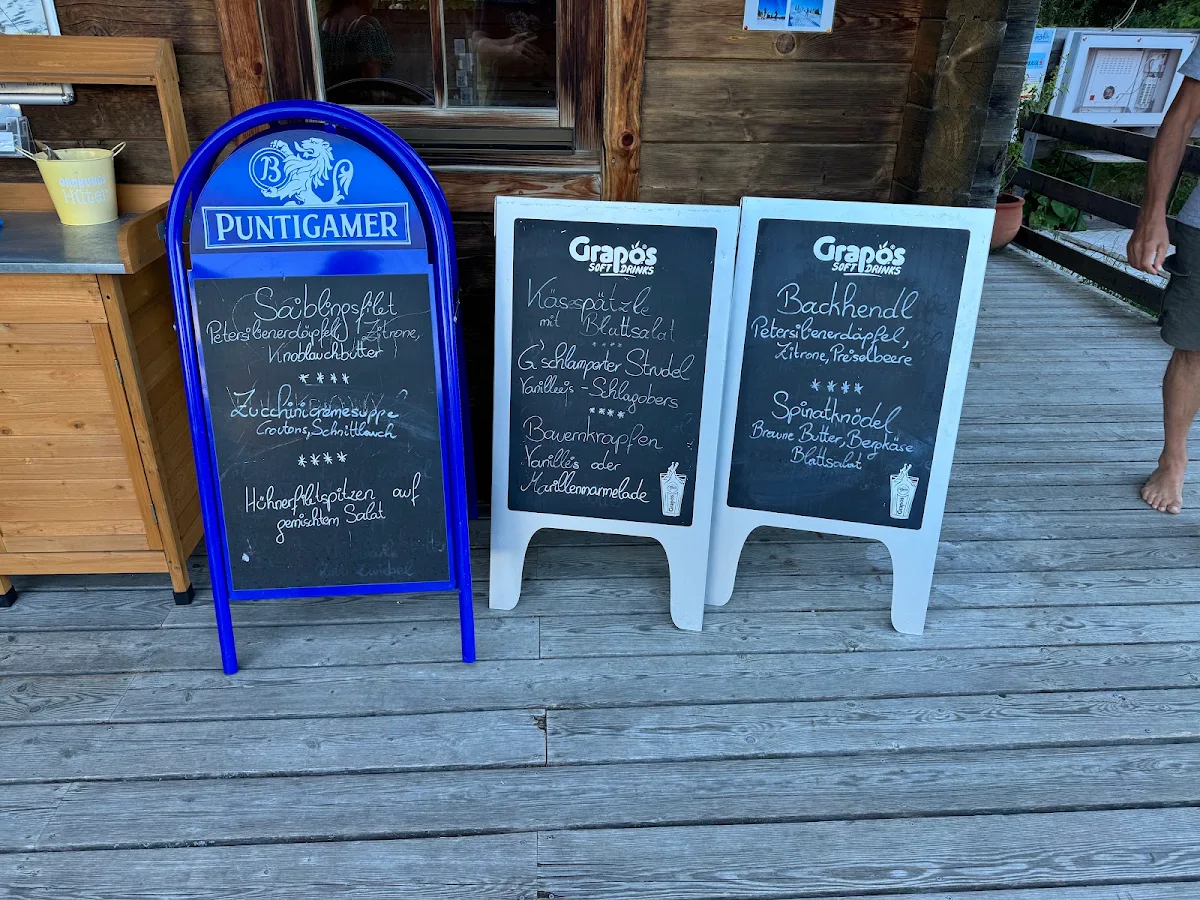 B
PUNTIGAMER
Saiblingsfilet
Petersilienerdäpfel, Zitrone,
Knoblauchbutter
****
Zucchinicremesuppe
Croutons, Schnittlauch
****
Hühnerfiletspitzen auf
gemischtem Salat
Grapos
SOFT DRINKS
Kässpätzle
mit Blattsalat
****
G'schlamperter Strudel
Vanilleeis - Schlagobers
****
Bauernkrapfen
Vanilleis oder
Marillenmarmelade
Grapos
Grapos
SOFT DRINKS
Backhendl
Petersilienerdäpfel,
Zitrone, Preiselbeere
****
Spinatknödel
Braune Butter, Bergkäse
Blattsalat
Grapos